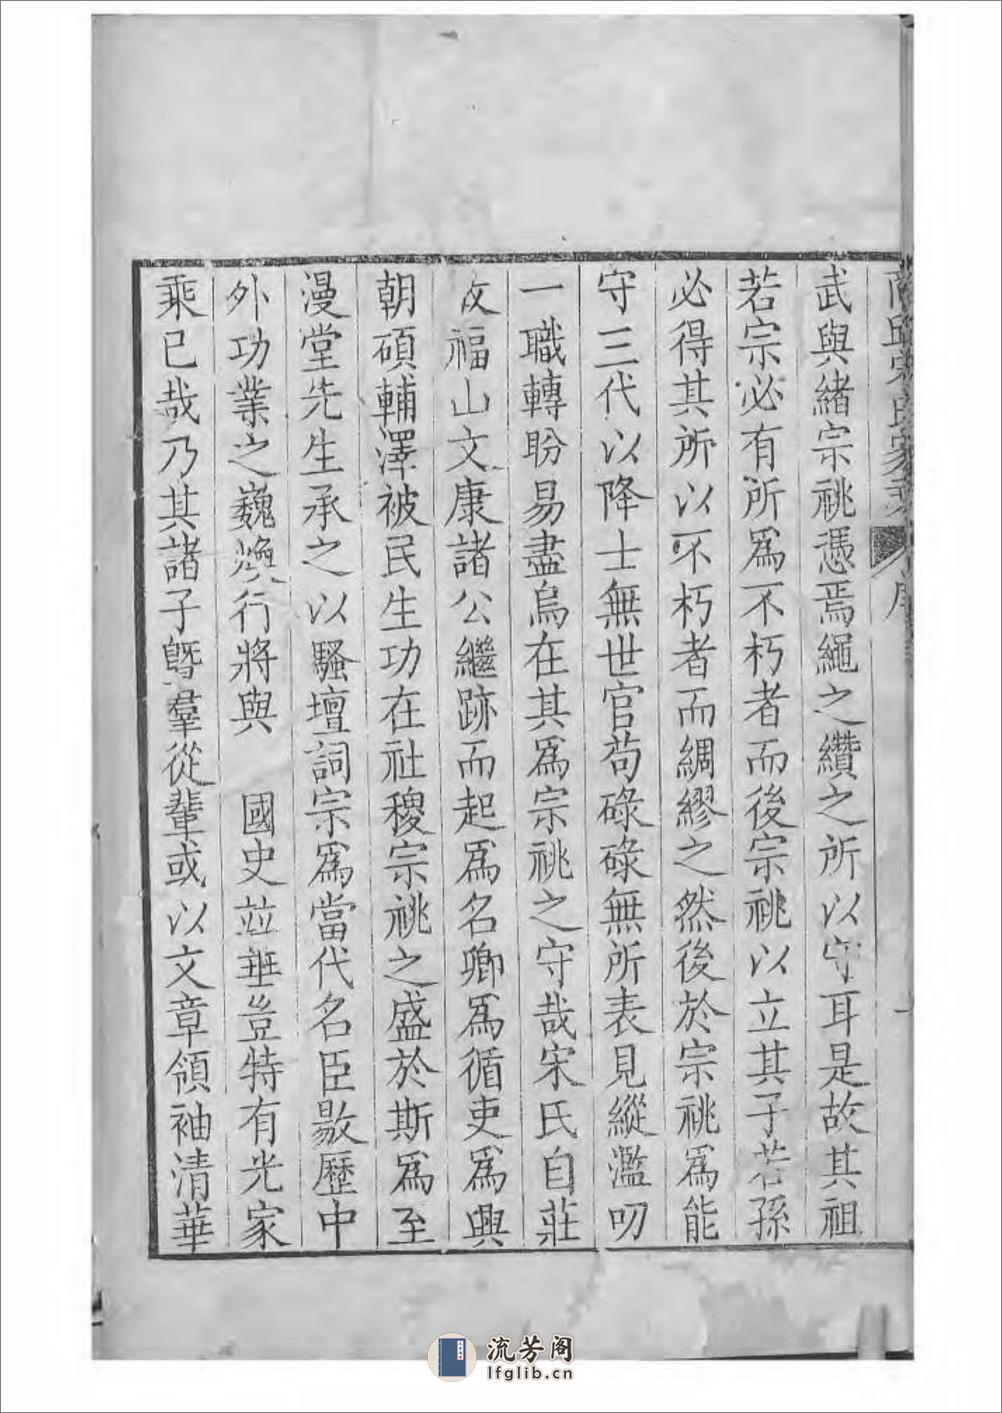 商邱宋氏家乘 序
武與緒宗祧憑焉繩之纘之所以守耳是故其祖
若宗必有所爲不朽者而後宗祧以立其子若孫
必得其所以不朽者而綢繆之然後於宗祧爲能
守三代以降士無世官苟碌碌無所表見縱濫叨
一職轉盼易盡烏在其爲宗祧之守哉宋氏自莊
敏福山文康諸公繼跡而起爲名卿爲循吏爲興
朝碩輔澤被民生功在社稷宗祧之盛於斯爲至
漫堂先生承之以騷壇詞宗爲當代名臣敭歷中
外功業之巍煥行將與 國史並垂豈特有光家
乘已哉乃其諸子曁羣從輩或以文章領袖清華
流芳阁
lfglib.cn